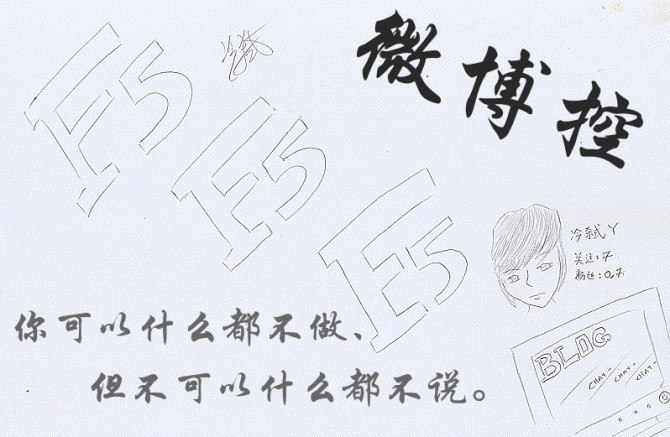 微博控
F5
F5
F5
冷弑丫
关注:7
粉丝:0.7
BLOG
CHAT-
CHAT-
CHAT-
你可以什么都不做、
但不可以什么都不说。